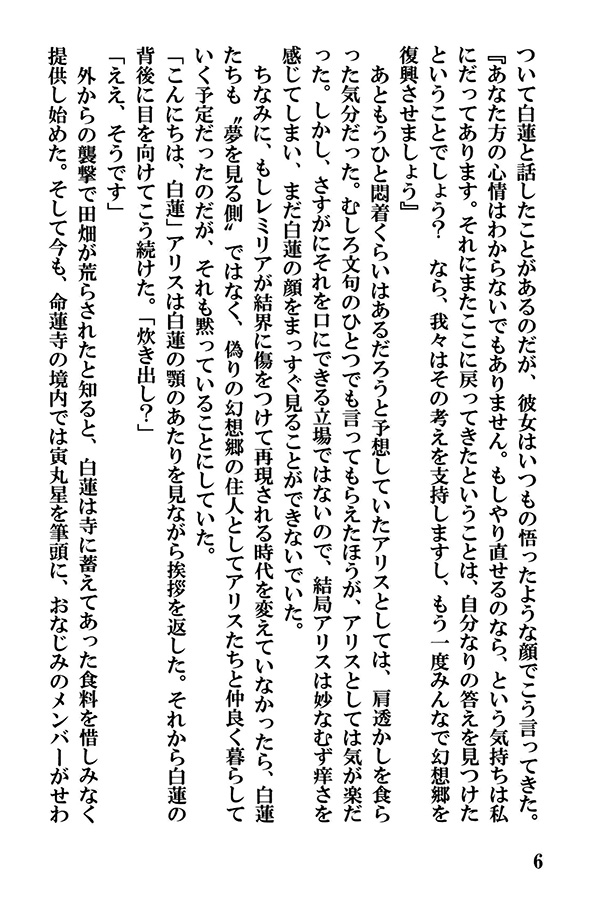 ついて白蓮と話したことがあるのだが、彼女はいつもの悟ったような顔でこう言ってきた。
『あなた方の心情はわからないでもありません。もしやり直せるのなら、という気持ちは私
にだってあります。それにまたここに戻ってきたということは、自分なりの答えを見つけた
ということでしょう？　なら、我々はその考えを支持しますし、もう一度みんなで幻想郷を
復興させましょう』
あともうひと悶着くらいはあるだろうと予想していたアリスとしては、肩透かしを食ら
った気分だった。むしろ文句のひとつでも言ってもらえたほうが、アリスとしては気が楽だ
った。しかし、さすがにそれを口にできる立場ではないので、結局アリスは妙なむず痒さを
感じてしまい、まだ白蓮の顔をまっすぐ見ることができないでいた。
ちなみに、もしレミリアが結界に傷をつけて再現される時代を変えていなかったら、白蓮
たちも〝夢を見る側〟ではなく、偽りの幻想郷の住人としてアリスたちと仲良く暮らして
いく予定だったのだが、それも黙っていることにしていた。
「こんにちは、白蓮」アリスは白蓮の顎のあたりを見ながら挨拶を返した。それから白蓮の
背後に目を向けてこう続けた。「炊き出し？」
「ええ、そうです」
外からの襲撃で田畑が荒らされたと知ると、白蓮は寺に蓄えてあった食料を惜しみなく
提供し始めた。そして今も、命蓮寺の境内では寅丸星を筆頭に、おなじみのメンバーがせわ
6